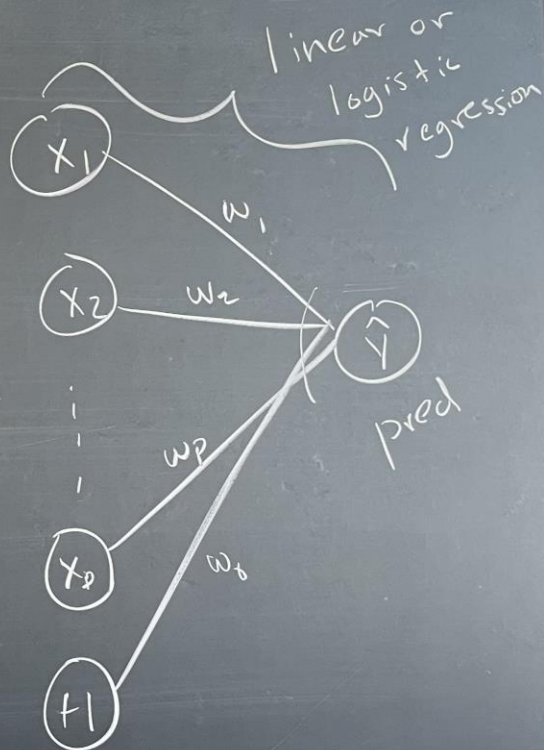 linear or
logistic
regression
x₁
w₁
x₂
w₂
ŷ
pred
wₚ
xₚ
w₀
+1